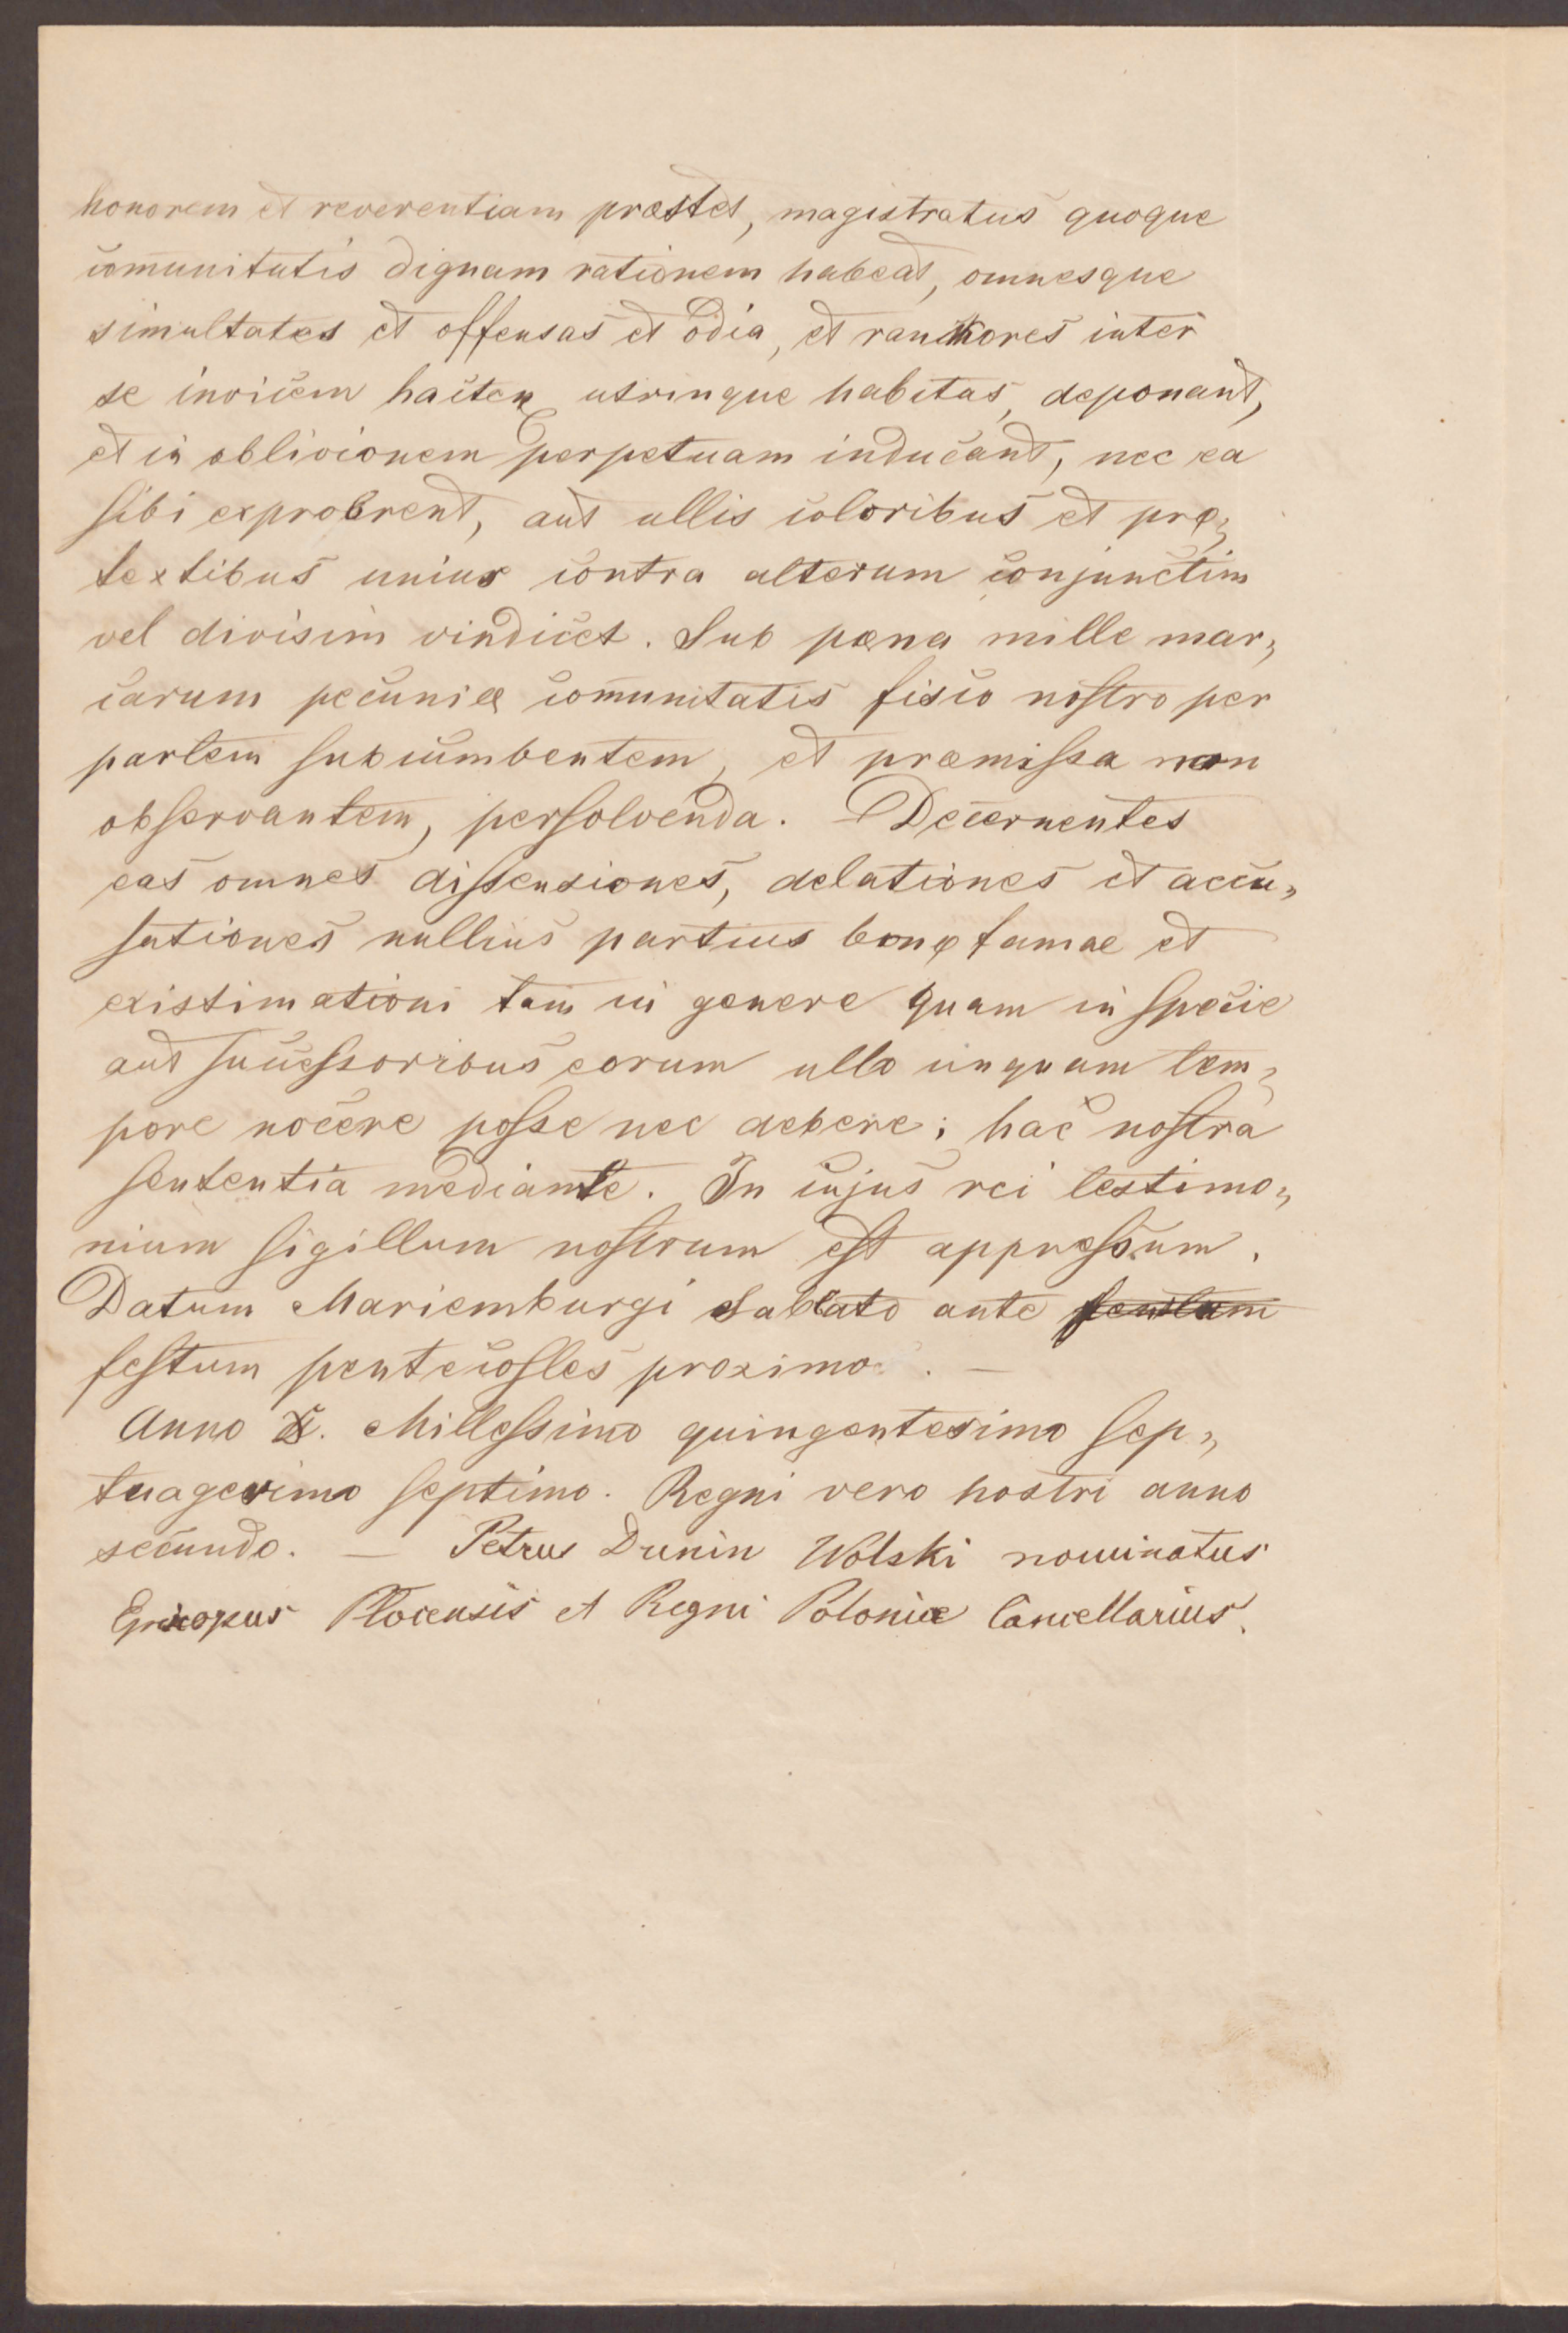 honorem et reverentiam præstet, magistratus quoque
com̄unitatis dignam rationem habeat, omnesque
simultates et offensas et odia, et ranchores inter
se invicem hacten utrinque habitas, deponant,
et in oblivionem perpetuam inducant, nec ea
sibi exprobrent, aut ullis coloribus et præ„
textibus unius contra alterum conjunctim
vel divisim vindicet. Sub pœna mille mar„
carum pecuniæ com̄unitatis fisco nostro per
partem subcumbentem, et præmissa non
observantem, persolvenda. Decernentes
eas omnes dissensiones, delationes et accu„
sationes nullius partius bonæ famae et
existimationi tam in genere quam in specie
aut successoribus eorum ullo unquam tem„
pore nocere posse nec debere; hac nostra
sententia mediante. In cujus rei testimo„
nium sigillum nostrum est appressum.
Datum Mariemburgi Sabbato ante
festum pentecostes proximo. —
Anno D. Millessimo quingentesimo sep„
tuagesimo septimo. Regni vero nostri anno
secundo. — Petrus Dunin Wolski nominatus
Episcopus Plocensis et Regni Poloniæ Cancellarius.